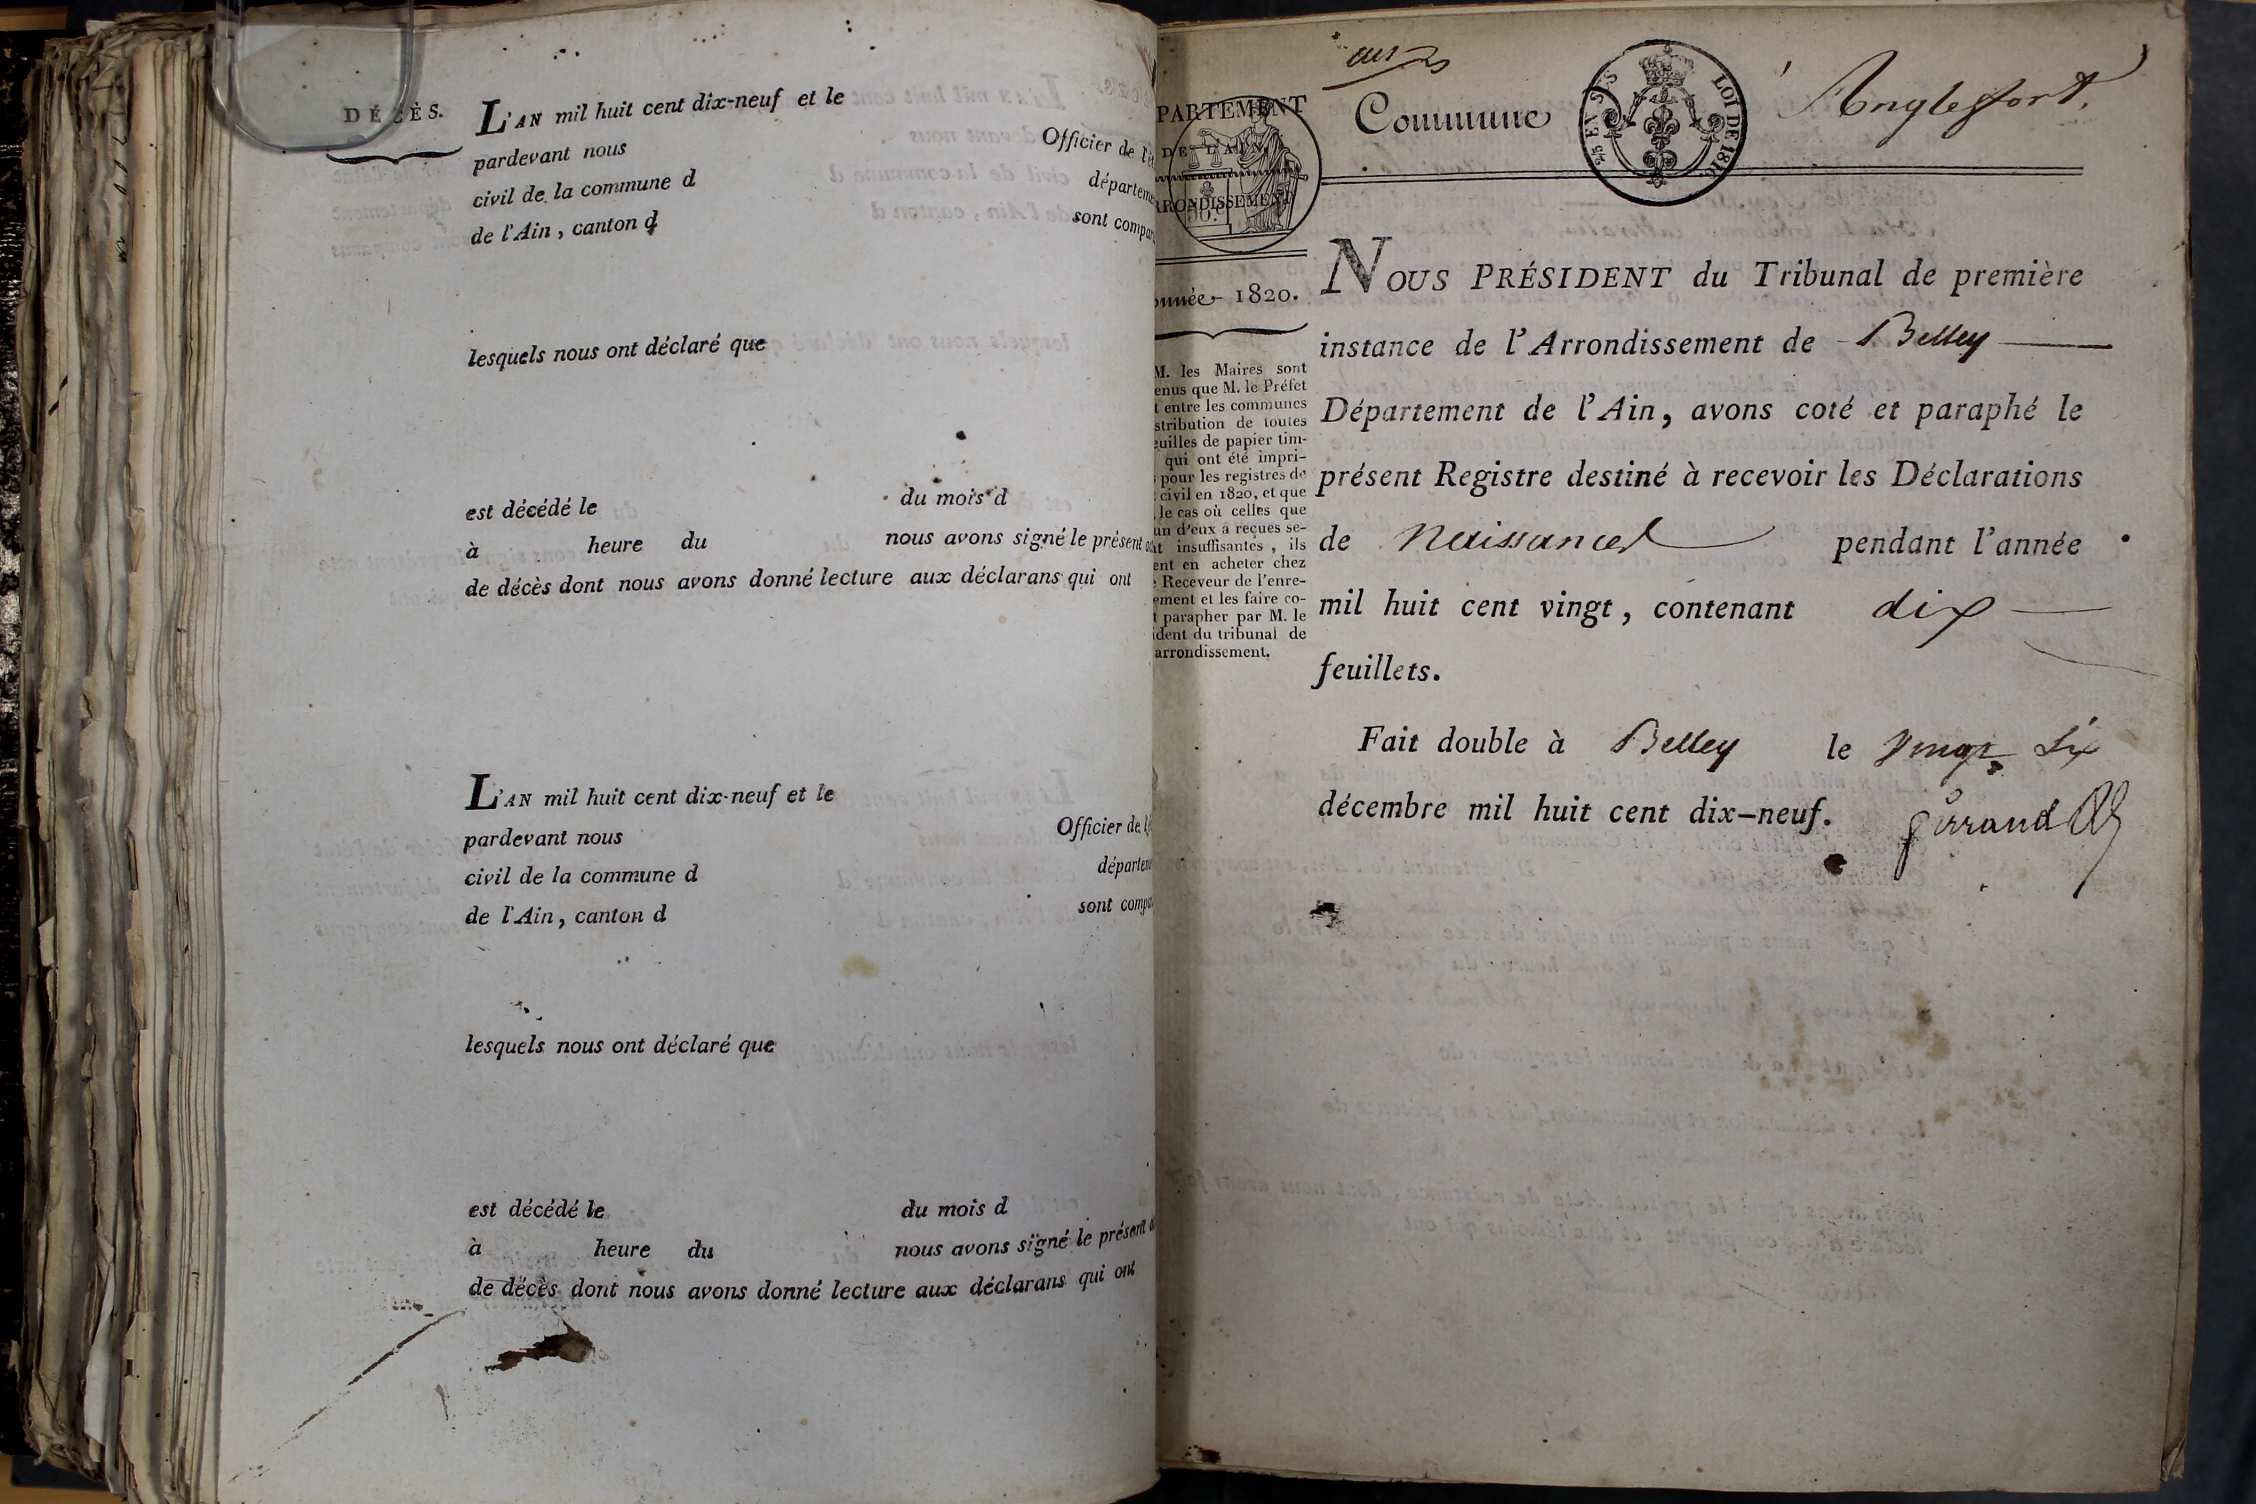 DÉCÈS.
L'AN mil huit cent dix-neuf et le
pardevant nous Officier de l'ét
civil de la commune d départeme
de l'Ain, canton d sont compar
lesquels nous ont déclaré que
est décédé le du mois d
à heure du nous avons signé le présent ac
de décès dont nous avons donné lecture aux déclarans qui ont
L'AN mil huit cent dix-neuf et le
pardevant nous Officier de l'é
civil de la commune d départem
de l'Ain, canton d sont compa
lesquels nous ont déclaré que
est décédé le du mois d
à heure du nous avons signé le présent a
de décès dont nous avons donné lecture aux déclarans qui ont
PARTEMENT
DE L'AIN,
RRONDISSEMENT
50.c
nnée 1820.
M. les Maires sont
enus que M. le Préfet
t entre les communes
stribution de toutes
euilles de papier tim-
qui ont été impri-
pour les registres de
civil en 1820, et que
le cas où celles que
un d'eux a reçues se-
nt insuffisantes, ils
ent en acheter chez
e Receveur de l'enre-
ement et les faire co-
t parapher par M. le
ident du tribunal de
arrondissement.
Commune
25 EN SUS
LOI DE 1816
Anglefort.
NOUS PRÉSIDENT du Tribunal de première
instance de l'Arrondissement de Belley
Département de l'Ain, avons coté et paraphé le
présent Registre destiné à recevoir les Déclarations
de Naissances pendant l'année
mil huit cent vingt, contenant dix
feuillets.
Fait double à Belley le vingt six
décembre mil huit cent dix-neuf.